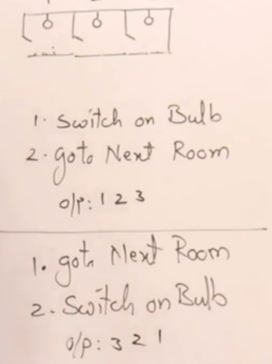 1. Switch on Bulb
2. goto Next Room
o/p: 1 2 3
1. goto Next Room
2. Switch on Bulb
o/p: 3 2 1